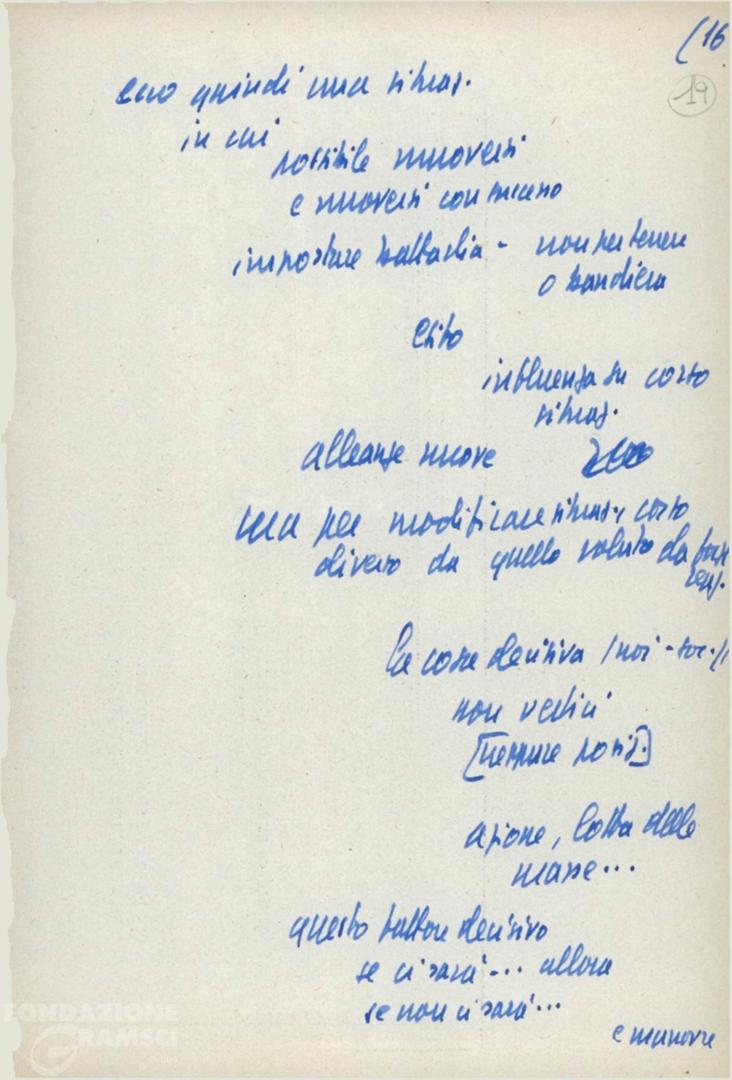 (16
19
ecco quindi una situaz.
in cui
possibile muoversi
e muoversi con successo
impostare battaglia - non per tenere
o bandiera
esito
influenza su corso
situaz.
alleanze nuove
ma per modificare situaz., corso
diverso da quello voluto da forze
reaz.
la cosa decisiva / noi - soc. /
non vertici
[neppure posiz.]
azione, lotta delle
masse...
questo fattore decisivo
se ci sarà... allora
se non ci sarà...
e manovre
FONDAZIONE
GRAMSCI